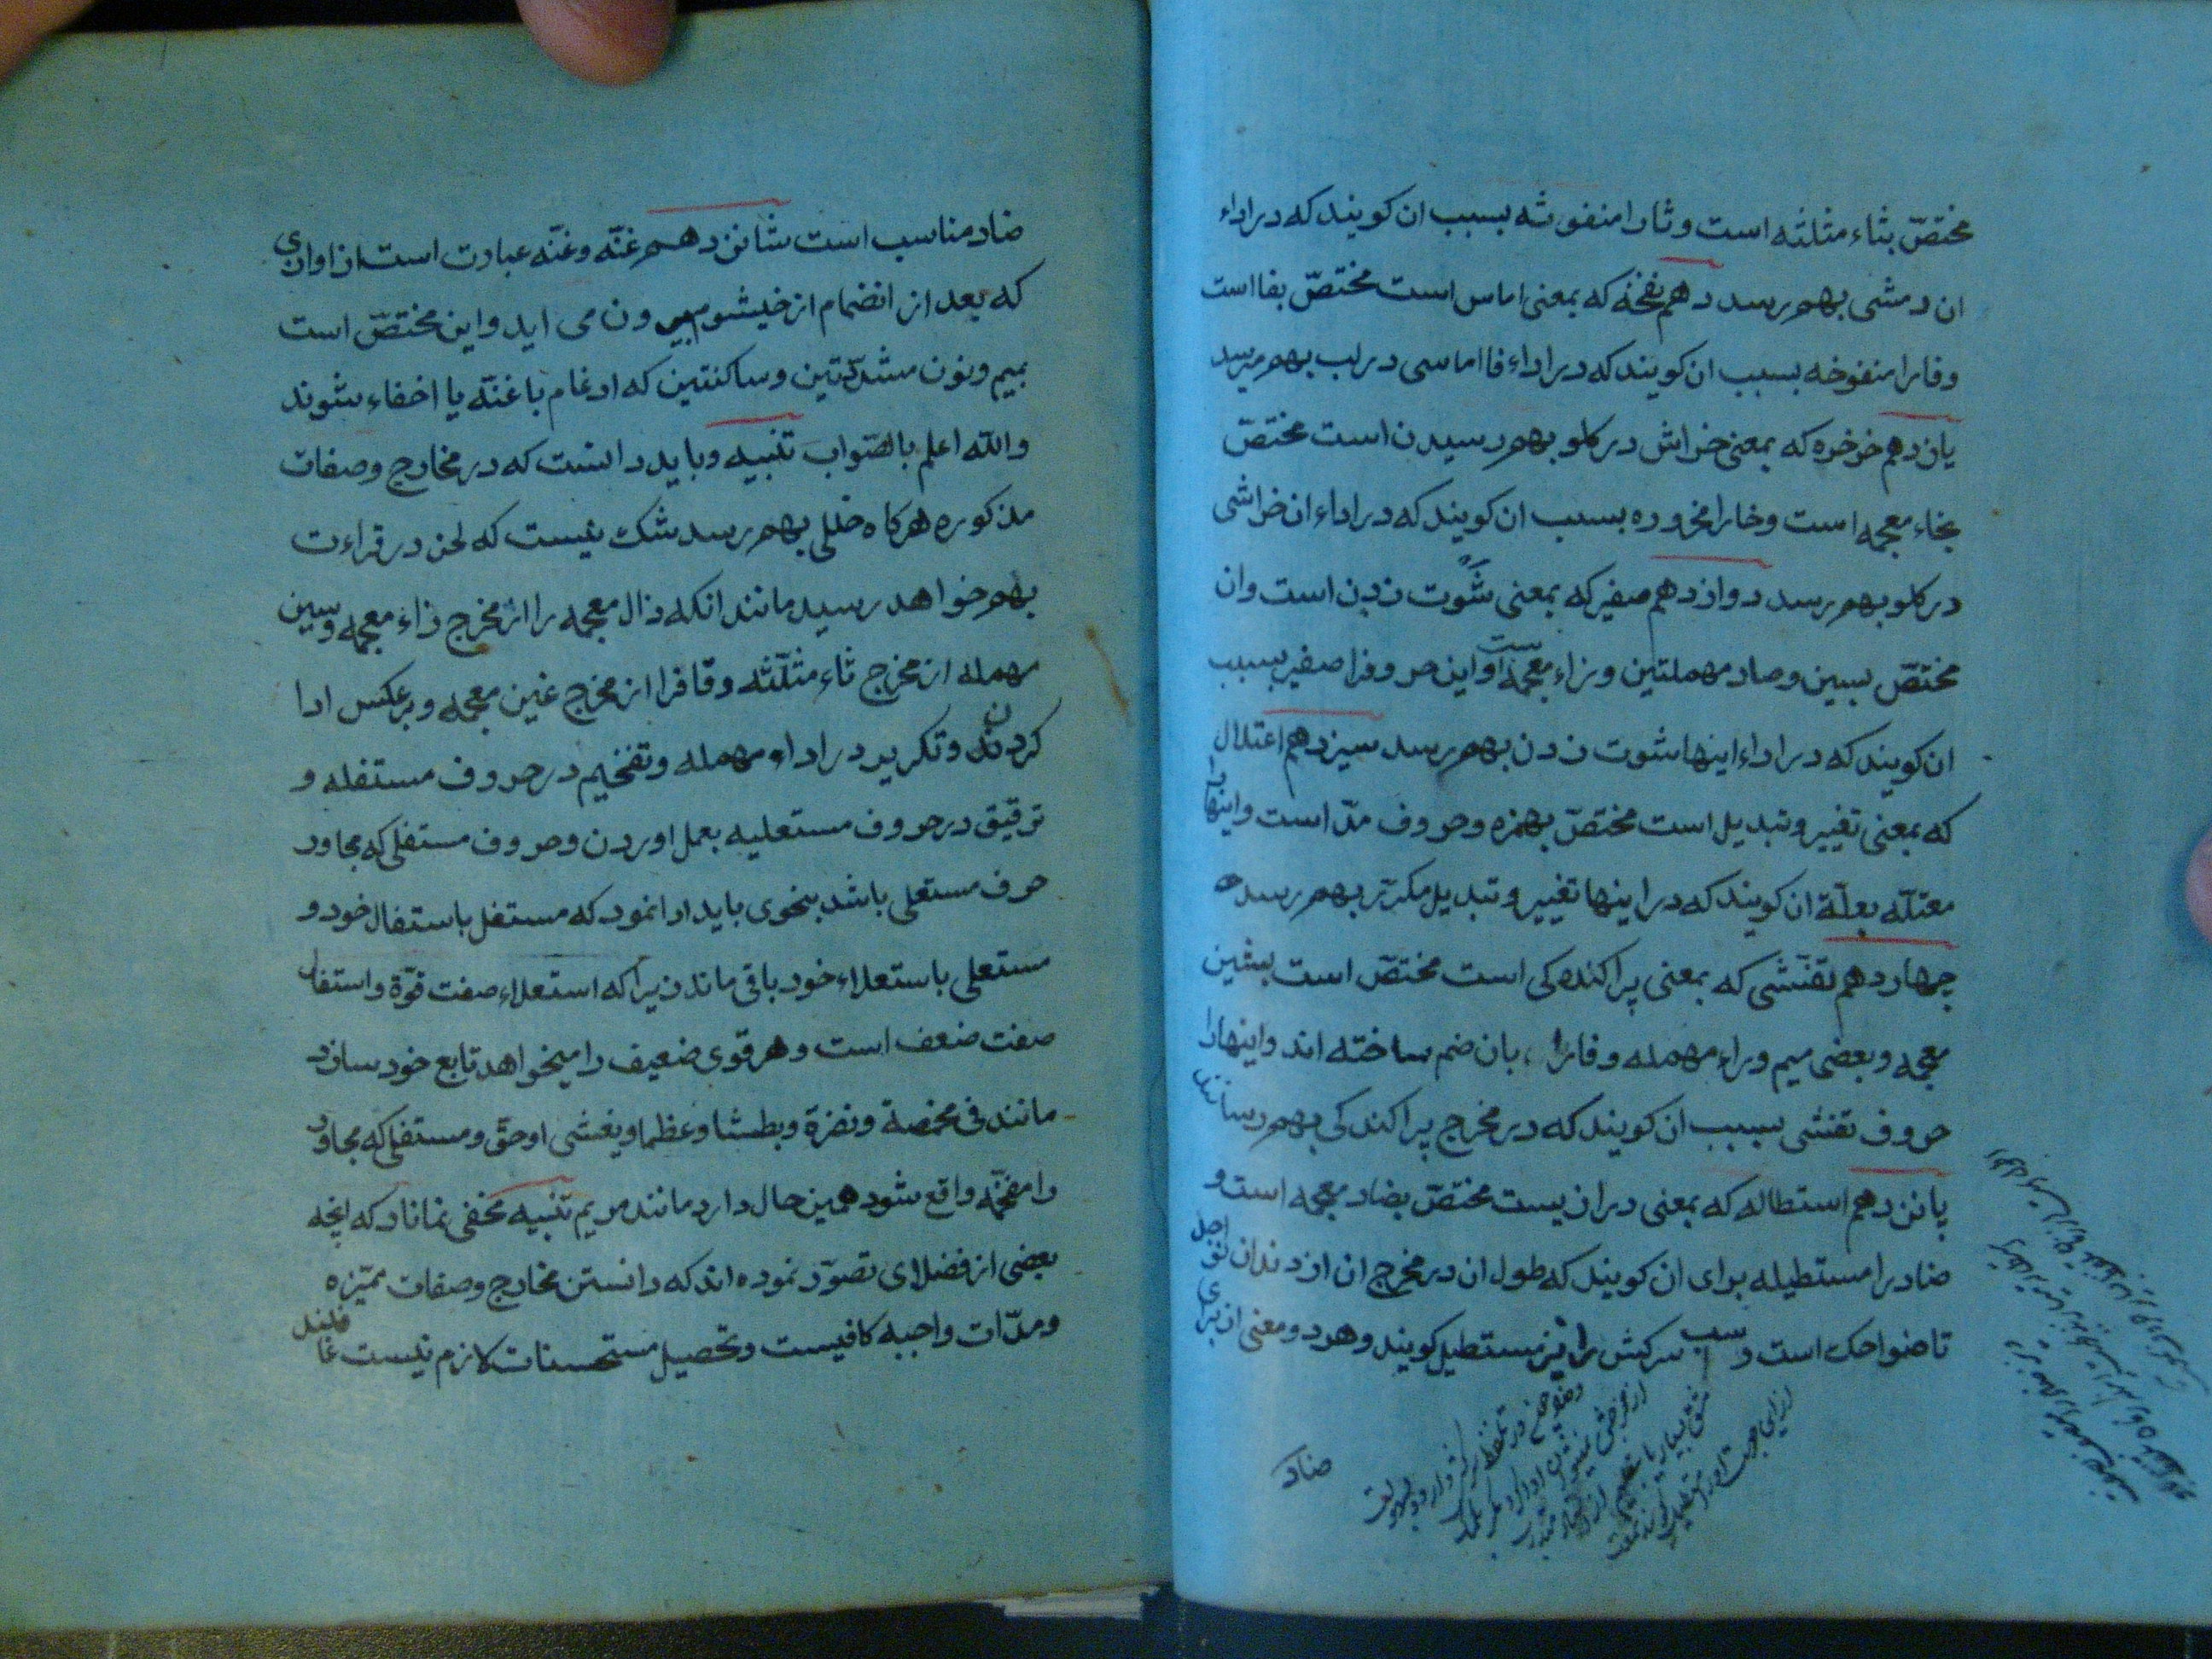 مختصّ بثاء مثلثه است و ثا را منفوثه بسبب ان کویند که در اداء
ان دمشی بهم رسد دهم نفخه که بمعنی اماس است مختصّ بفا است
و فا را منفوخه بسبب ان کویند که در اداء فا اماسی در لب بهم میرسد
یازدهم خرخره که بمعنی خراش در کلو بهم رسیدن است مختصّ
بخاء معجمه است و خا را مخروره بسبب ان کویند که در اداء ان خراشی
در کلو بهم رسد دوازدهم صفیر که بمعنی شوت زدن است وان
مختصّ بسین و صاد مهملتین و زاء معجمه است و این حروف را صفیر بسبب
ان کویند که در اداء اینها شوت زدن بهم رسد سیزدهم اعتلال
که بمعنی تغییر و تبدیل است مختصّ بهمزه و حروف مدّ است و اینها را
معتلّه بعلّة ان کویند که در اینها تغییر و تبدیل مکرّر بهم رسد
چهاردهم تفشّی که بمعنی پراکنده کی است مختصّ است بشین
معجمه و بعضی میم و راء مهمله و فا را بان ضم ساخته اند و اینها را
حروف تفشی بسبب ان کویند که در مخرج پراکندکی بهم رسانند
پانزدهم استطاله که بمعنی درازیست مختصّ بضاد معجمه است و
ضاد را مستطیله برای ان کویند که طول ان در مخرج ان از دندان نواجذ
تا ضواحک است و اسب سرکش را نیز مستطیل کویند و هر دو معنی از برای
ضاد
ضاد مناسب است شانزدهم غنّه و غنّه عبارت است از اوازی
که بعد از انضمام از خیشوم بیرون می اید و این مختصّ است
بمیم و نون مشدّدتین و ساکنتین که ادغام با غنّه یا اخفاء شوند
والله اعلم بالصّواب تنبیه و باید دانست که در مخارج و صفات
مذکوره هرکاه خللی بهم رسد شک نیست که لحن در قراءت
بهم خواهد رسید مانند انکه ذال معجمه را از مخرج زاء معجمه و سین
مهمله از مخرج ثاء مثلّثه و قاف را از مخرج غین معجمه و برعکس ادا
کردن و تکریر در اداء مهمله و تفخیم در حروف مستفله و
ترقیق در حروف مستعلیه بعمل اوردن و حروف مستفلی که مجاور
حرف مستعلی باشد بنحوی باید ادا نمود که مستفل باستفال خود و
مستعلی باستعلاء خود باقی ماند زیرا که استعلاء صفت قوّة و استفال
صفت ضعف است و هر قوی ضعیف را میخواهد تابع خود سازد
مانند فی مخمصة و نضرة و بطشا و عظما و یغشی او حقّ و مستفلی که مجاور
را مفخّمه واقع شود همین حال دارد مانند مریم تنبیه مخفی نماناد که انچه
بعضی از فضلای تصوّر نموده اند که دانستن مخارج و صفات ممیّزه
و مدّات واجبه کافیست و تحصیل مستحسنات لازم نیست غافلند